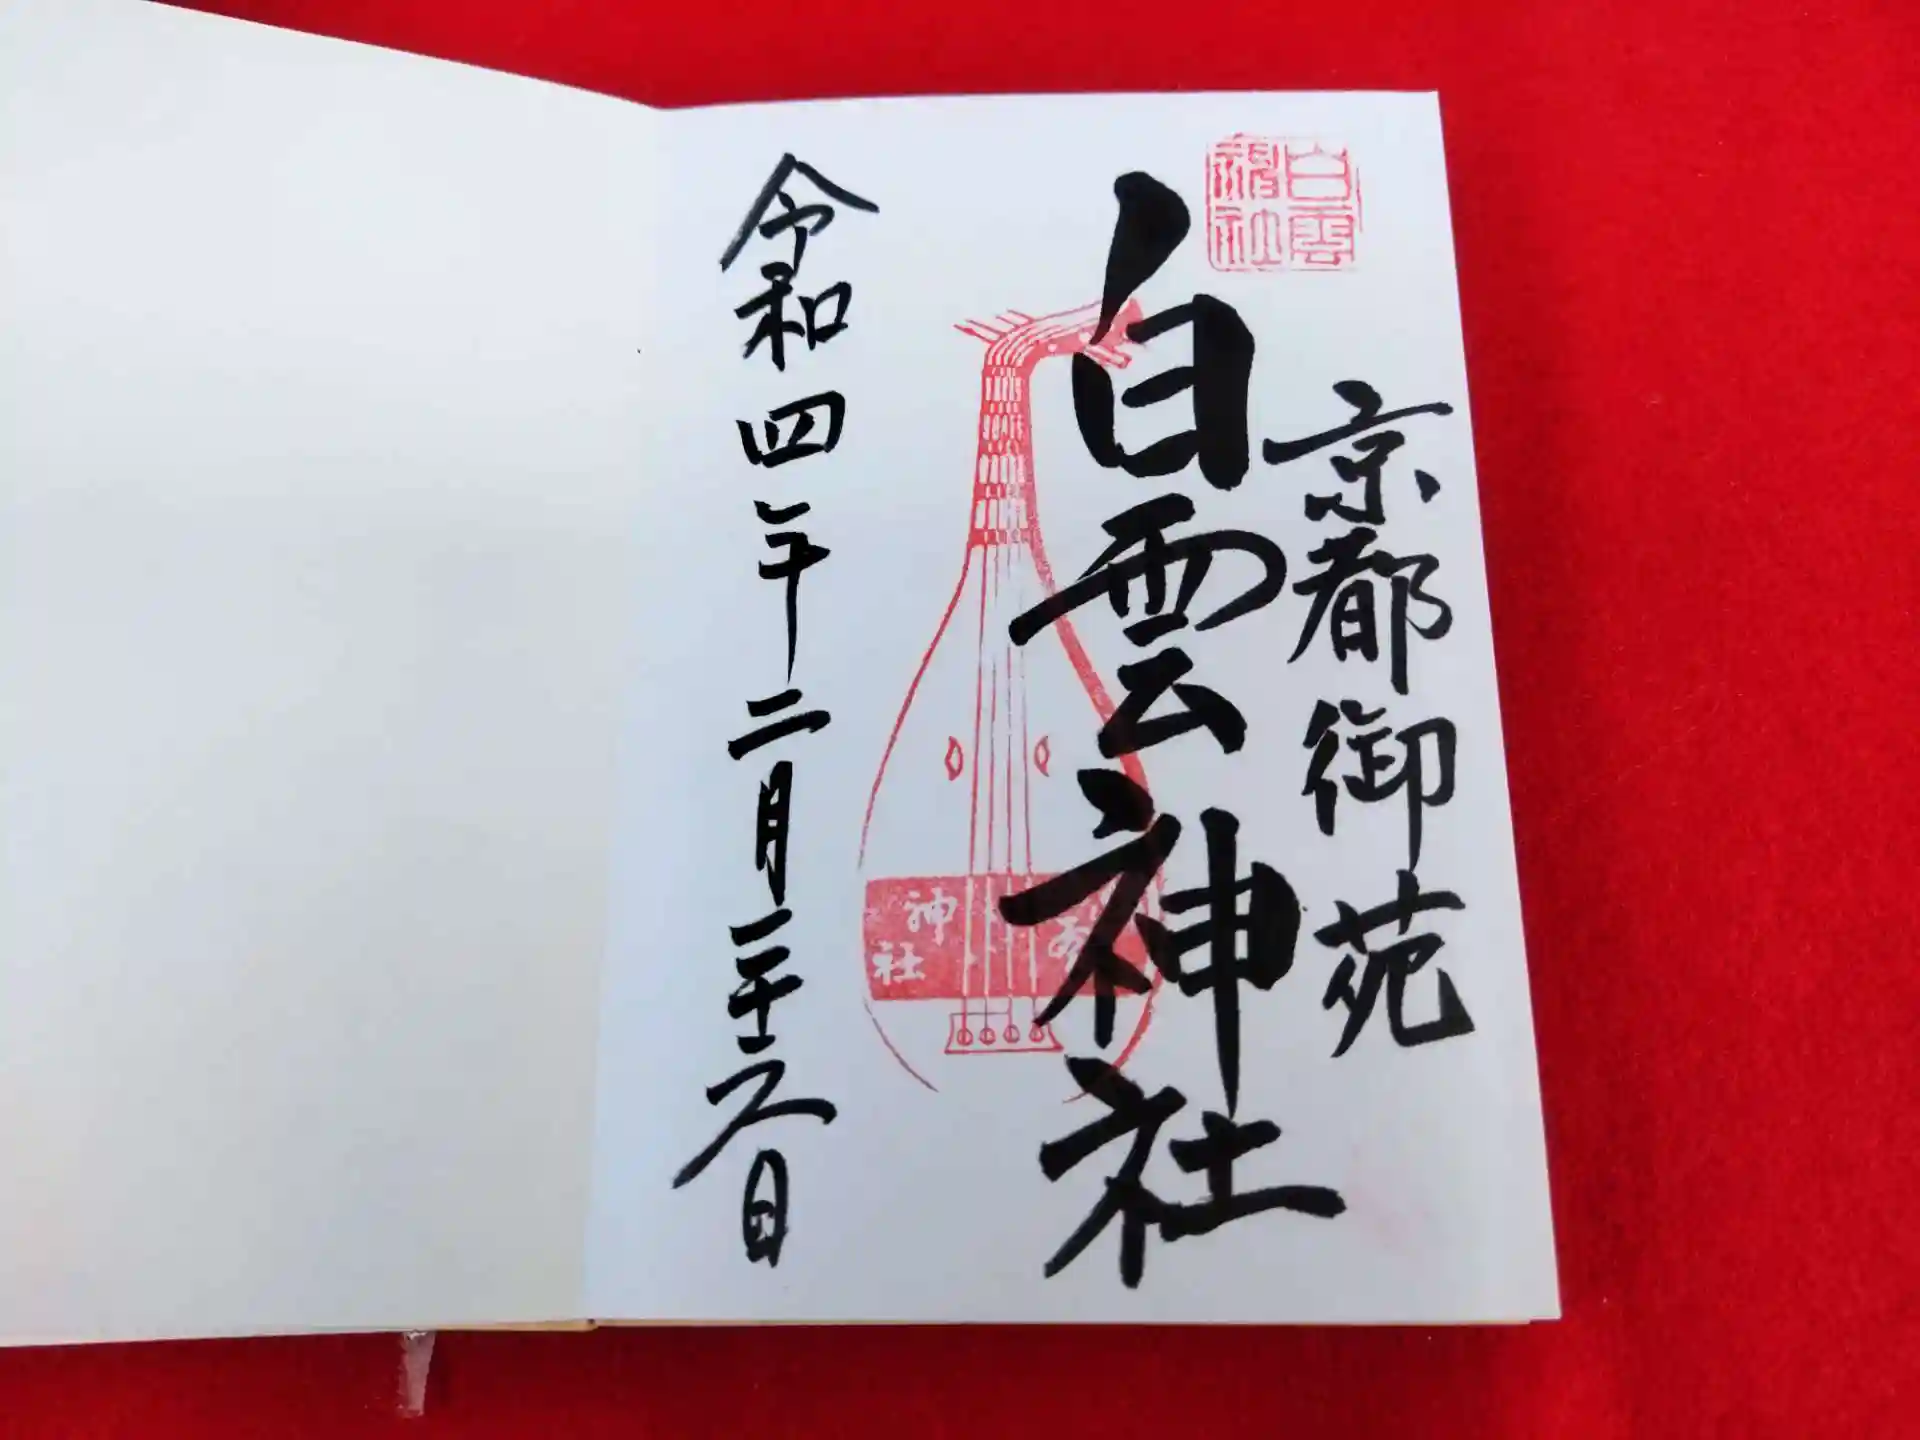 京都御苑
白雲神社
白雲
神社
神
社
令和四年二月二十六日